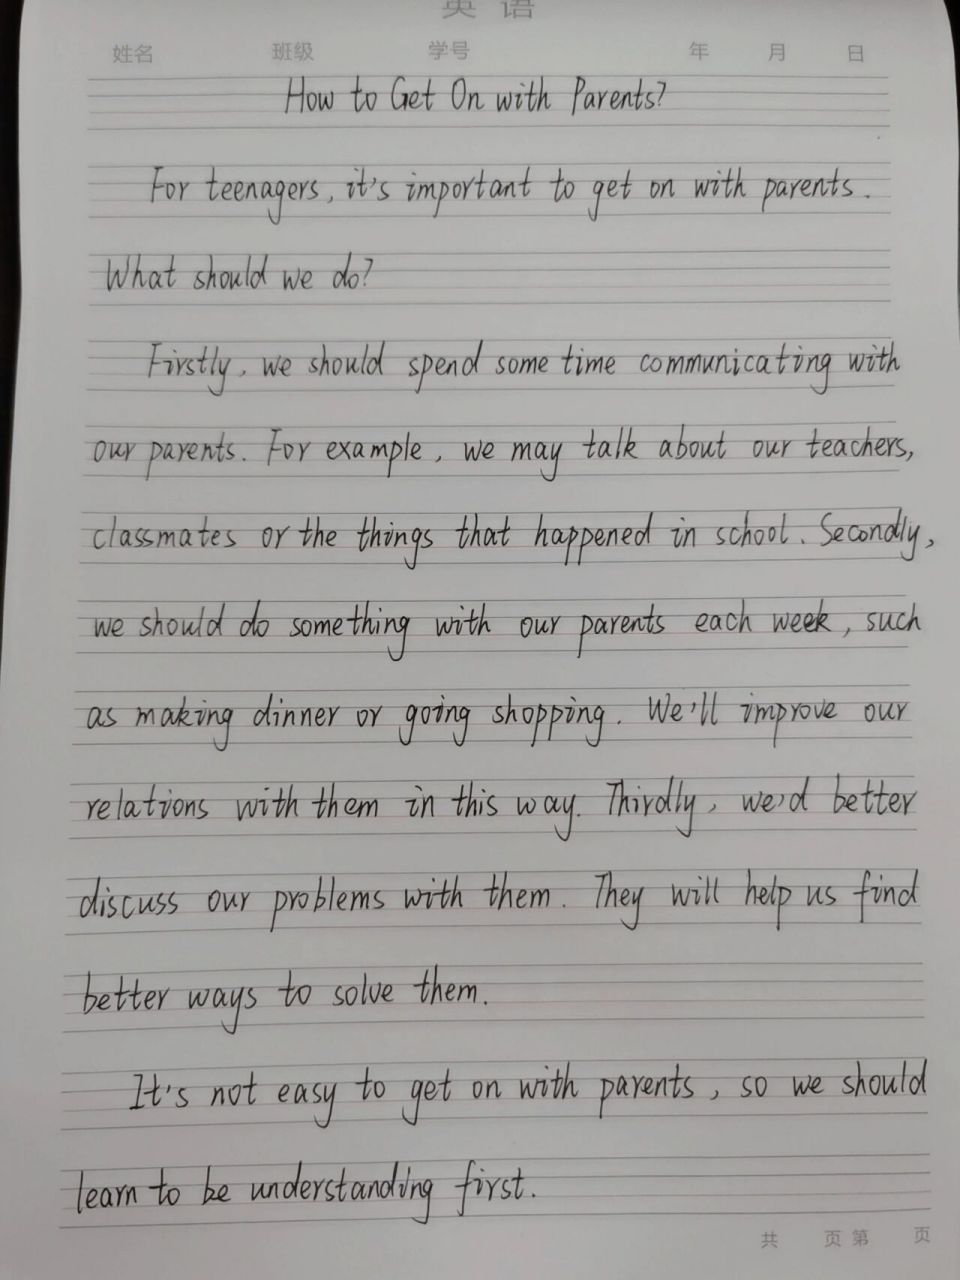 英 语
姓名 班级 学号 年 月 日
How to Get On with Parents?
For teenagers, it's important to get on with parents.
What should we do?
Firstly, we should spend some time communicating with
our parents. For example, we may talk about our teachers,
classmates or the things that happened in school. Secondly,
we should do something with our parents each week, such
as making dinner or going shopping. We'll improve our
relations with them in this way. Thirdly, we'd better
discuss our problems with them. They will help us find
better ways to solve them.
It's not easy to get on with parents, so we should
learn to be understanding first.
共 页 第 页